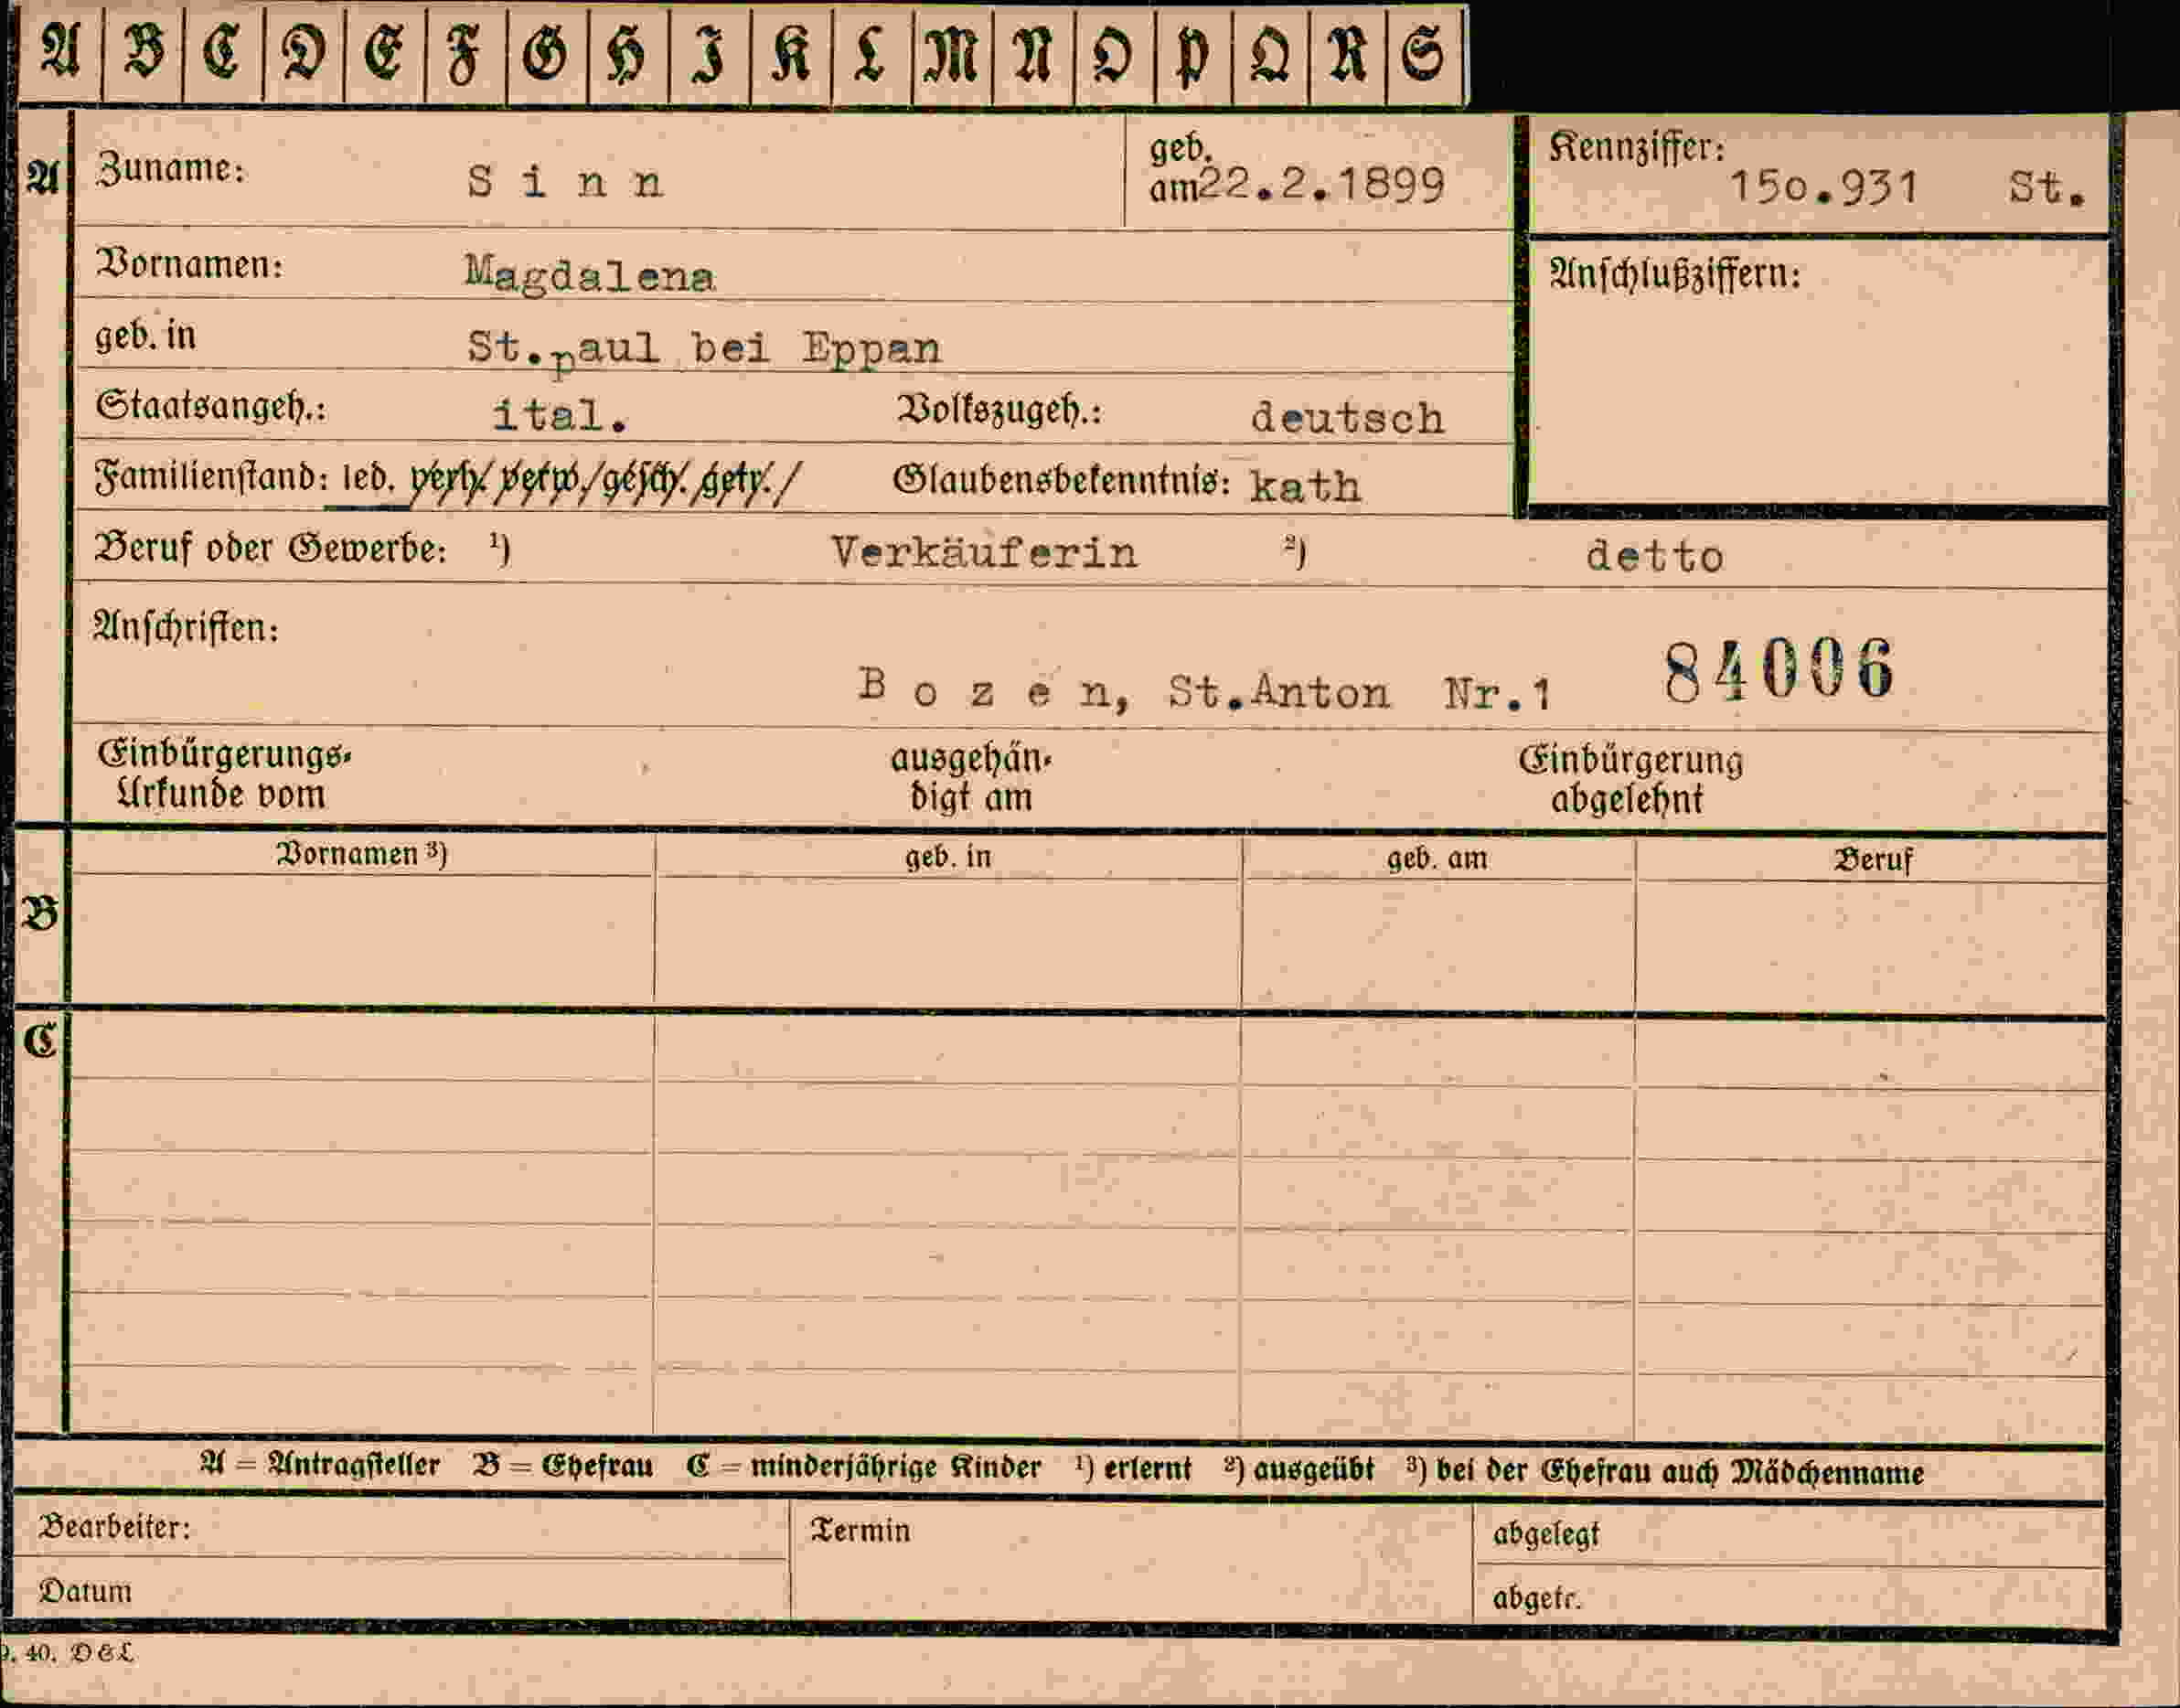 A B C D E F G H I K L M N O P Q R S
A Zuname: Sinn geb. am 22.2.1899 Kennziffer: 15o.931 St.
Vornamen: Magdalena Anschlußziffern:
geb. in St.paul bei Eppan
Staatsangeh.: ital. Volkszugeh.: deutsch
Familienstand: led. verh. verw. gesch. getr. Glaubensbekenntnis: kath
Beruf oder Gewerbe: ¹) Verkäuferin ²) detto
Anschriften:
Bozen, St.Anton Nr.1 84006
Einbürgerungs-Urkunde vom ausgehändigt am Einbürgerung abgelehnt
Vornamen ³) geb. in geb. am Beruf
B
C
A = Antragsteller B = Ehefrau C = minderjährige Kinder ¹) erlernt ²) ausgeübt ³) bei der Ehefrau auch Mädchenname
Bearbeiter: Termin abgelegt
Datum abgetr.
40. D&L